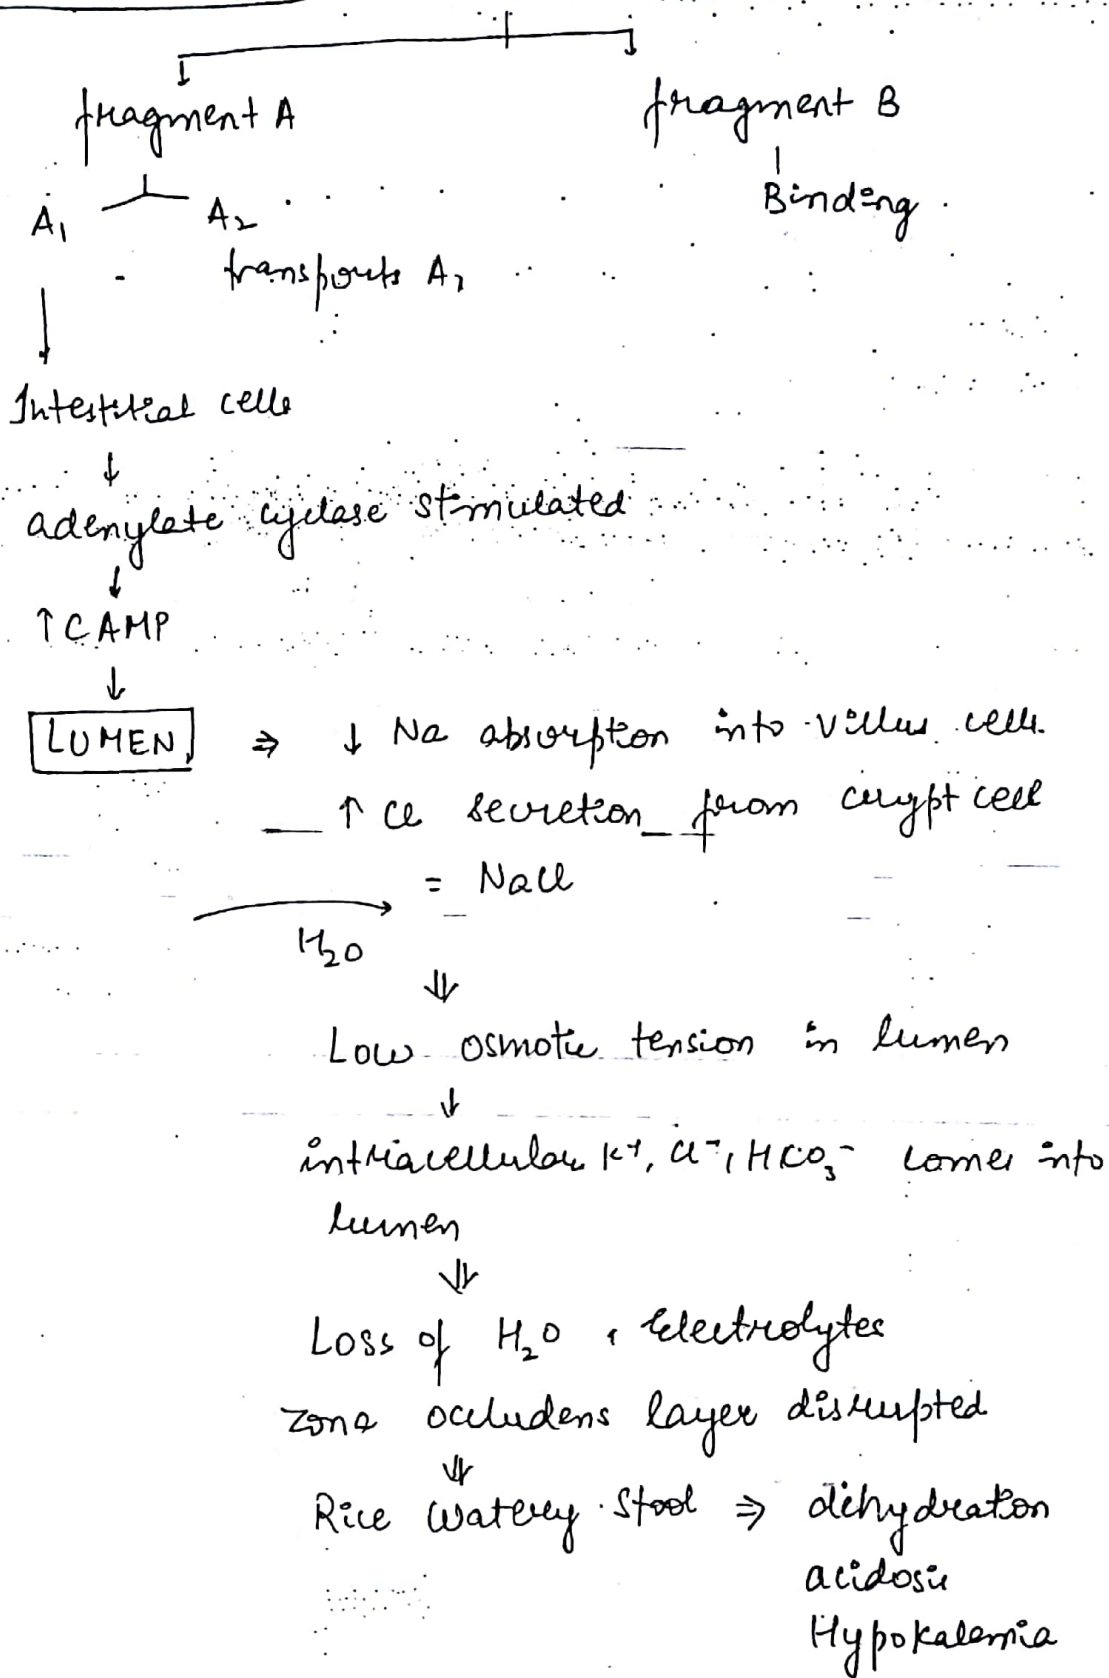 fragment A fragment B
A₁ A₂ Binding
transports A₁
Intestitial cells
↓
adenylate cyclase stimulated
↓
↑ CAMP
↓
LUMEN ⇒ ↓ Na absorption into villus cells.
↑ Cl secretion from crypt cell
= NaCl
H₂O
⇓
Low osmotic tension in lumen
↓
intracellular K⁺, Cl⁻, HCO₃⁻ comes into
lumen
⇓
Loss of H₂O & Electrolytes
Zona occludens layer disrupted
⇓
Rice Watery Stool ⇒ dehydration
acidosis
Hypokalemia